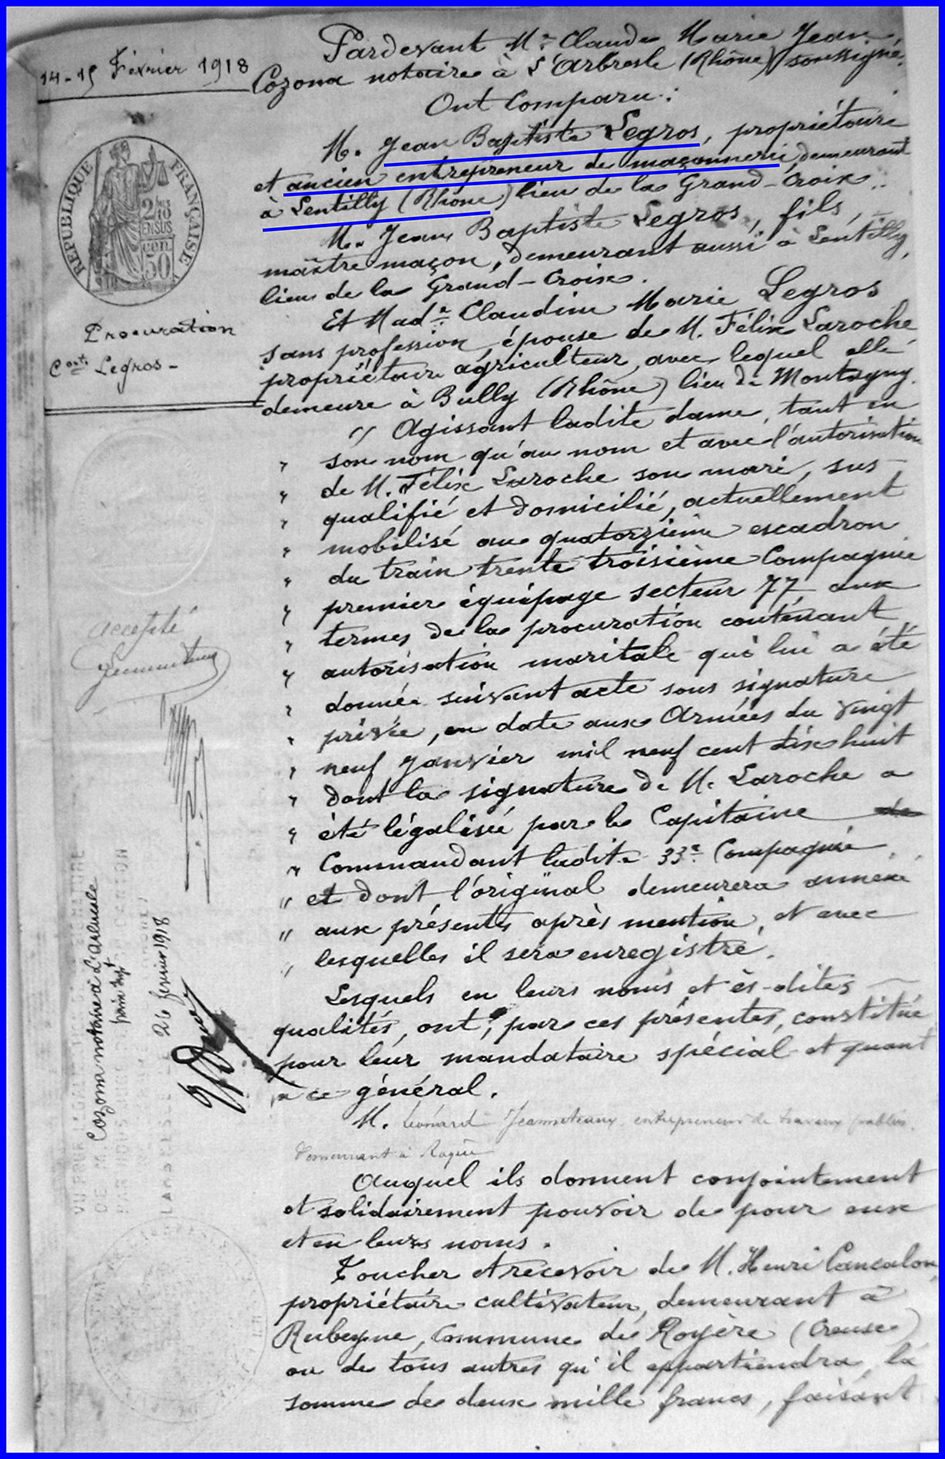 14-15 Février 1918
Pardevant Me Claude Marie Jean
Cozona notaire à L'Arbresle (Rhône) soussigné.
Ont Comparu :
M. Jean Baptiste Legros, propriétaire
et ancien entrepreneur de maçonnerie demeurant
à Lentilly (Rhône) lieu de la Grand-Croix.
M. Jean Baptiste Legros, fils,
maître maçon, demeurant aussi à Lentilly,
lieu de la Grand-Croix.
Et Made Claudine Marie Legros
sans profession, épouse de M. Félix Laroche
propriétaire agriculteur, avec lequel elle
demeure à Bully (Rhône) lieu de Montagny.
RÉPUBLIQUE FRANÇAISE
Procuration
Corts Legros -
" Agissant ladite dame, tant en
" son nom qu'au nom et avec l'autorisation
" de M. Félix Laroche son mari, sus
" qualifié et domicilié, actuellement
" mobilisé au quatorzième escadron
" du train trente troisième Compagnie
" premier équipage secteur 77 aux
" termes de la procuration contenant
" autorisation maritale qui lui a été
" donnée suivant acte sous signature
" privée, en date aux Armées du vingt
" neuf Janvier mil neuf cent dix huit
" dont la signature de M. Laroche a
" été légalisée par le Capitaine de
" Commandant ladite 33e Compagnie
" et dont l'original demeurera annexé
" aux présentes après mention, et avec
" lesquelles il sera enregistré.
accepté
Lesquels en leurs noms et ès-dites
qualités, ont, par ces présentes, constitué
pour leur mandataire spécial et quant
à ce général.
M. Léonard Jeanneteaux entrepreneur de travaux publics.
demeurant à Royère
Cozona notaire à L'Arbresle
26 février 1918
Auquel ils donnent conjointement
et solidairement pouvoir de pour eux
et en leurs noms.
Toucher et recevoir de M. Henri Cancalon
propriétaire cultivateur, demeurant à
Rubeyne, Commune de Royère (Creuse)
ou de tous autres qu'il appartiendra, la
somme de deux mille francs, faisant